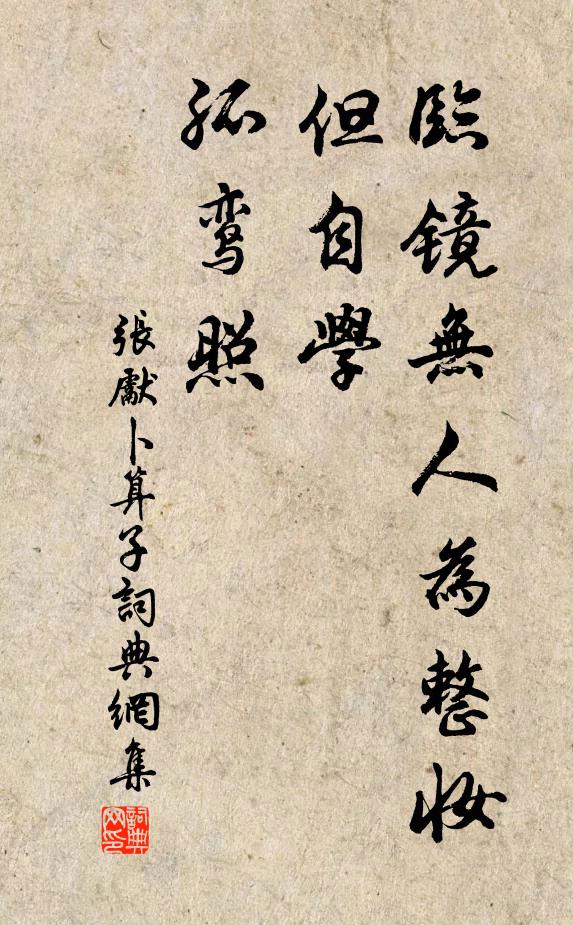 臨鏡無人為整妝
但自學
孤鸞照
張獻卜算子詞典網集
詞典
网印